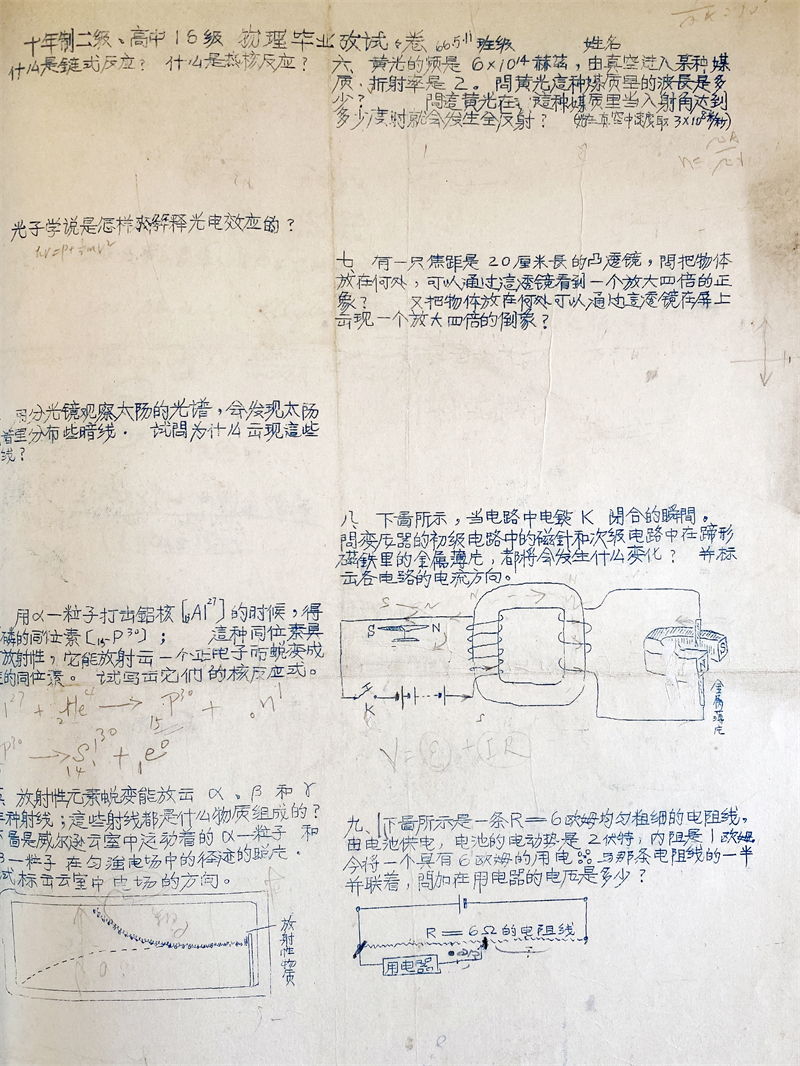 十年制二级、高中16级 物理毕业攷试卷 66.5.11 班级 姓名
什么是链式反应? 什么是热核反应?
光子学说是怎样来解释光电效应的?
用分光镜观察太阳的光谱,会发现太阳
里分布有些暗线. 试問为什么云现這些
线?
用α一粒子打击铝核[₁₃Al²⁷]的时候,得
磷的同位素[₁₅P³⁰]; 這种同位素具
放射性,它能放射云一个正电子而蜕变成
的同位素。 试写出它们的核反应式。
+ ₂He⁴ → ₁₅P³⁰ + ₀n¹
→ ₁₄Si³⁰ + ₁e⁰
放射性元素蜕变能放云 α、β 和 γ
种射线;這些射线都是什么物质组成的?
圖是威尔逊云室中运动着的α一粒子 和
β一粒子 在匀强电场中的径迹的照片.
试标云云室中电场的方向。
放射性物质
六、黄光的频是 6×10¹⁴ 赫芝,由真空进入某种媒
质.折射率是2。問黄光這种媒质里的波長是多
少? 問這黄光在這种媒质里当入射角达到
多少度时就会发生全反射? (光在真空中速度取 3×10⁸米/秒)
七、有一只焦距是 20厘米長的凸透镜,問把物体
放在何处,可以通过這透镜看到一个放大四倍的正
象? 又把物体放在何处可以通过這透镜在屏上
云现一个放大四倍的倒象?
八、下圖所示,当电路中电鍵 K 閉合的瞬間。
問变压器的初级电路中的磁針和次级电路中在蹄形
磁鉄里的金属薄片,都将会发生什么变化? 并标
云各电路的电流方向。
S N
S N
K
S
N
金属薄片
V = ε + IR
九、下圖所示是一条R=6欧姆均匀粗细的电阻线,
由电池供电,电池的电动势是2伏特,内阻是1欧姆
今将一个具有6欧姆的用电器与那条电阻线的一半
并联着,問加在用电器的电压是多少?
R=6Ω的电阻线
用电器